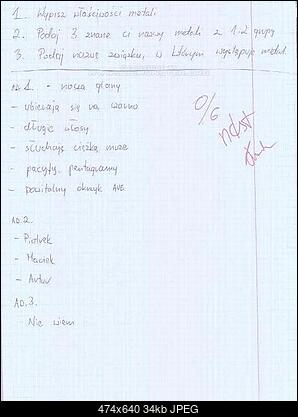 1. Wypisz właściwości metali
2. Podaj 3 znane ci nazwy metali z 1 i 2 grupy
3. Podaj nazwę związku, w którym występuje metal
AD 1. - noszą glany
- ubierają się na czarno
- długie włosy
- słuchają ciężką muze
- pacyfy, pentagramy
- powitalny okrzyk AVE
0/6
ndst
AD. 2.
- Piotrek
- Maciek
- Artur
AD. 3.
Nie wiem
474x640 34kb JPEG